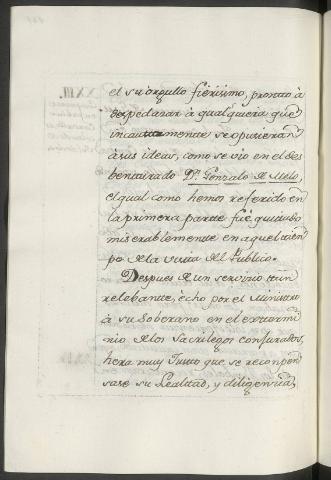 el su orgullo fierisimo, pronto à
despedazar à qualquiera que
incautamente se opusieran
à sus ideas, como se vio en el des
benturado Dn. Gonzalo de Melo,
el qual como hemos referido en
la primera parte fue quitado
miserablemente en aquel tiem
po de la vista del Publico.
Despues de un servicio tan
relebante, echo por el Ministro
à su Soberano en el extermi
nio de los Sacrilegos conjurados,
hera muy Justo que se recompen
sase su Lealtad, y diligencia,